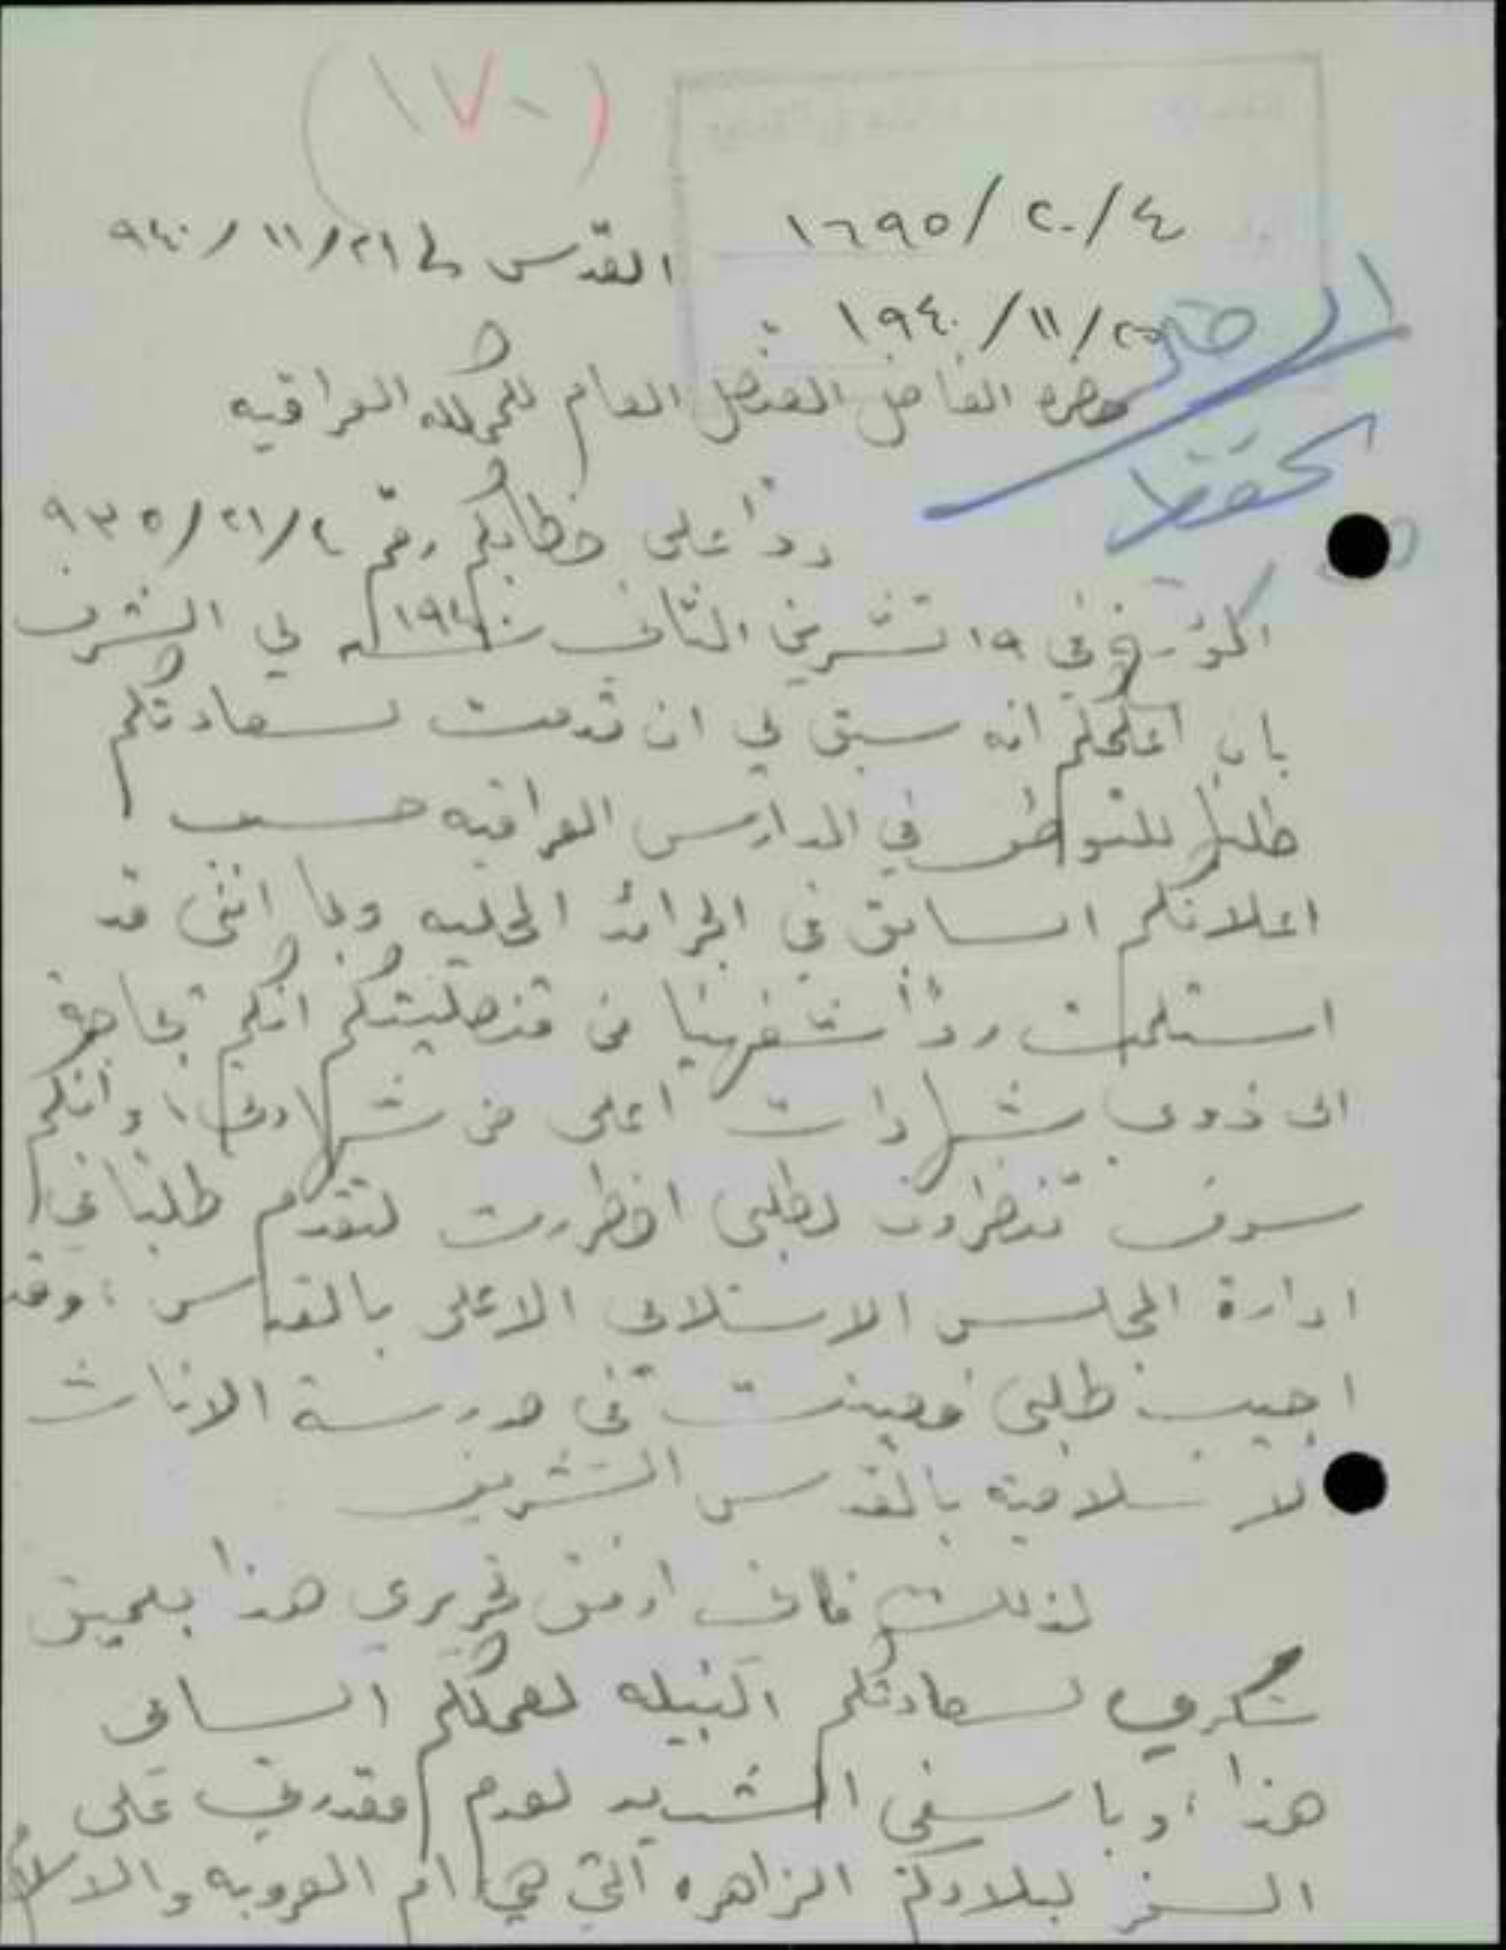 (١٧٠)
١٦٩٥/٢٠/٤
القدس في ٩٤٠/١١/٢١
١٩٤٠/١١/٢٥
حضرة الفاضل القنصل العام للمملكه العراقيه
تحفظ
رداً على خطابكم رقم ٩٣٥/٢١/٤
المؤرخ في ١٩ تشرين الثاني سنة ١٩٤٠ لي الشرف
بان اعلمكم انه سبق لي ان قدمت لسعادتكم
طلباً للتوظف في المدارس العراقيه حسب
اعلانكم السابق في الجرائد المحليه وبما انني قد
استلمت رداً شفهياً من قنصليتكم انكم بحاجة
الى ذوي شهادات اعلى من شهادتي، وانكم
سوف تنظرون بطلبي اضطررت لتقدم طلباً في
ادارة المجلس الاسلامي الاعلى بالقدس، وقد
اجيب طلبي فعينت في مدرسة الاناث
الاسلامية بالقدس الشريف
لذلك فاني ارفق تحريري هذا بعميق
شكري لسعادتكم النبيله لعملكم السامي
هذا، وباسفي الشديد لعدم مقدرتي على
السفر لبلادكم الزاهره التي هي ام العروبه والاسلام